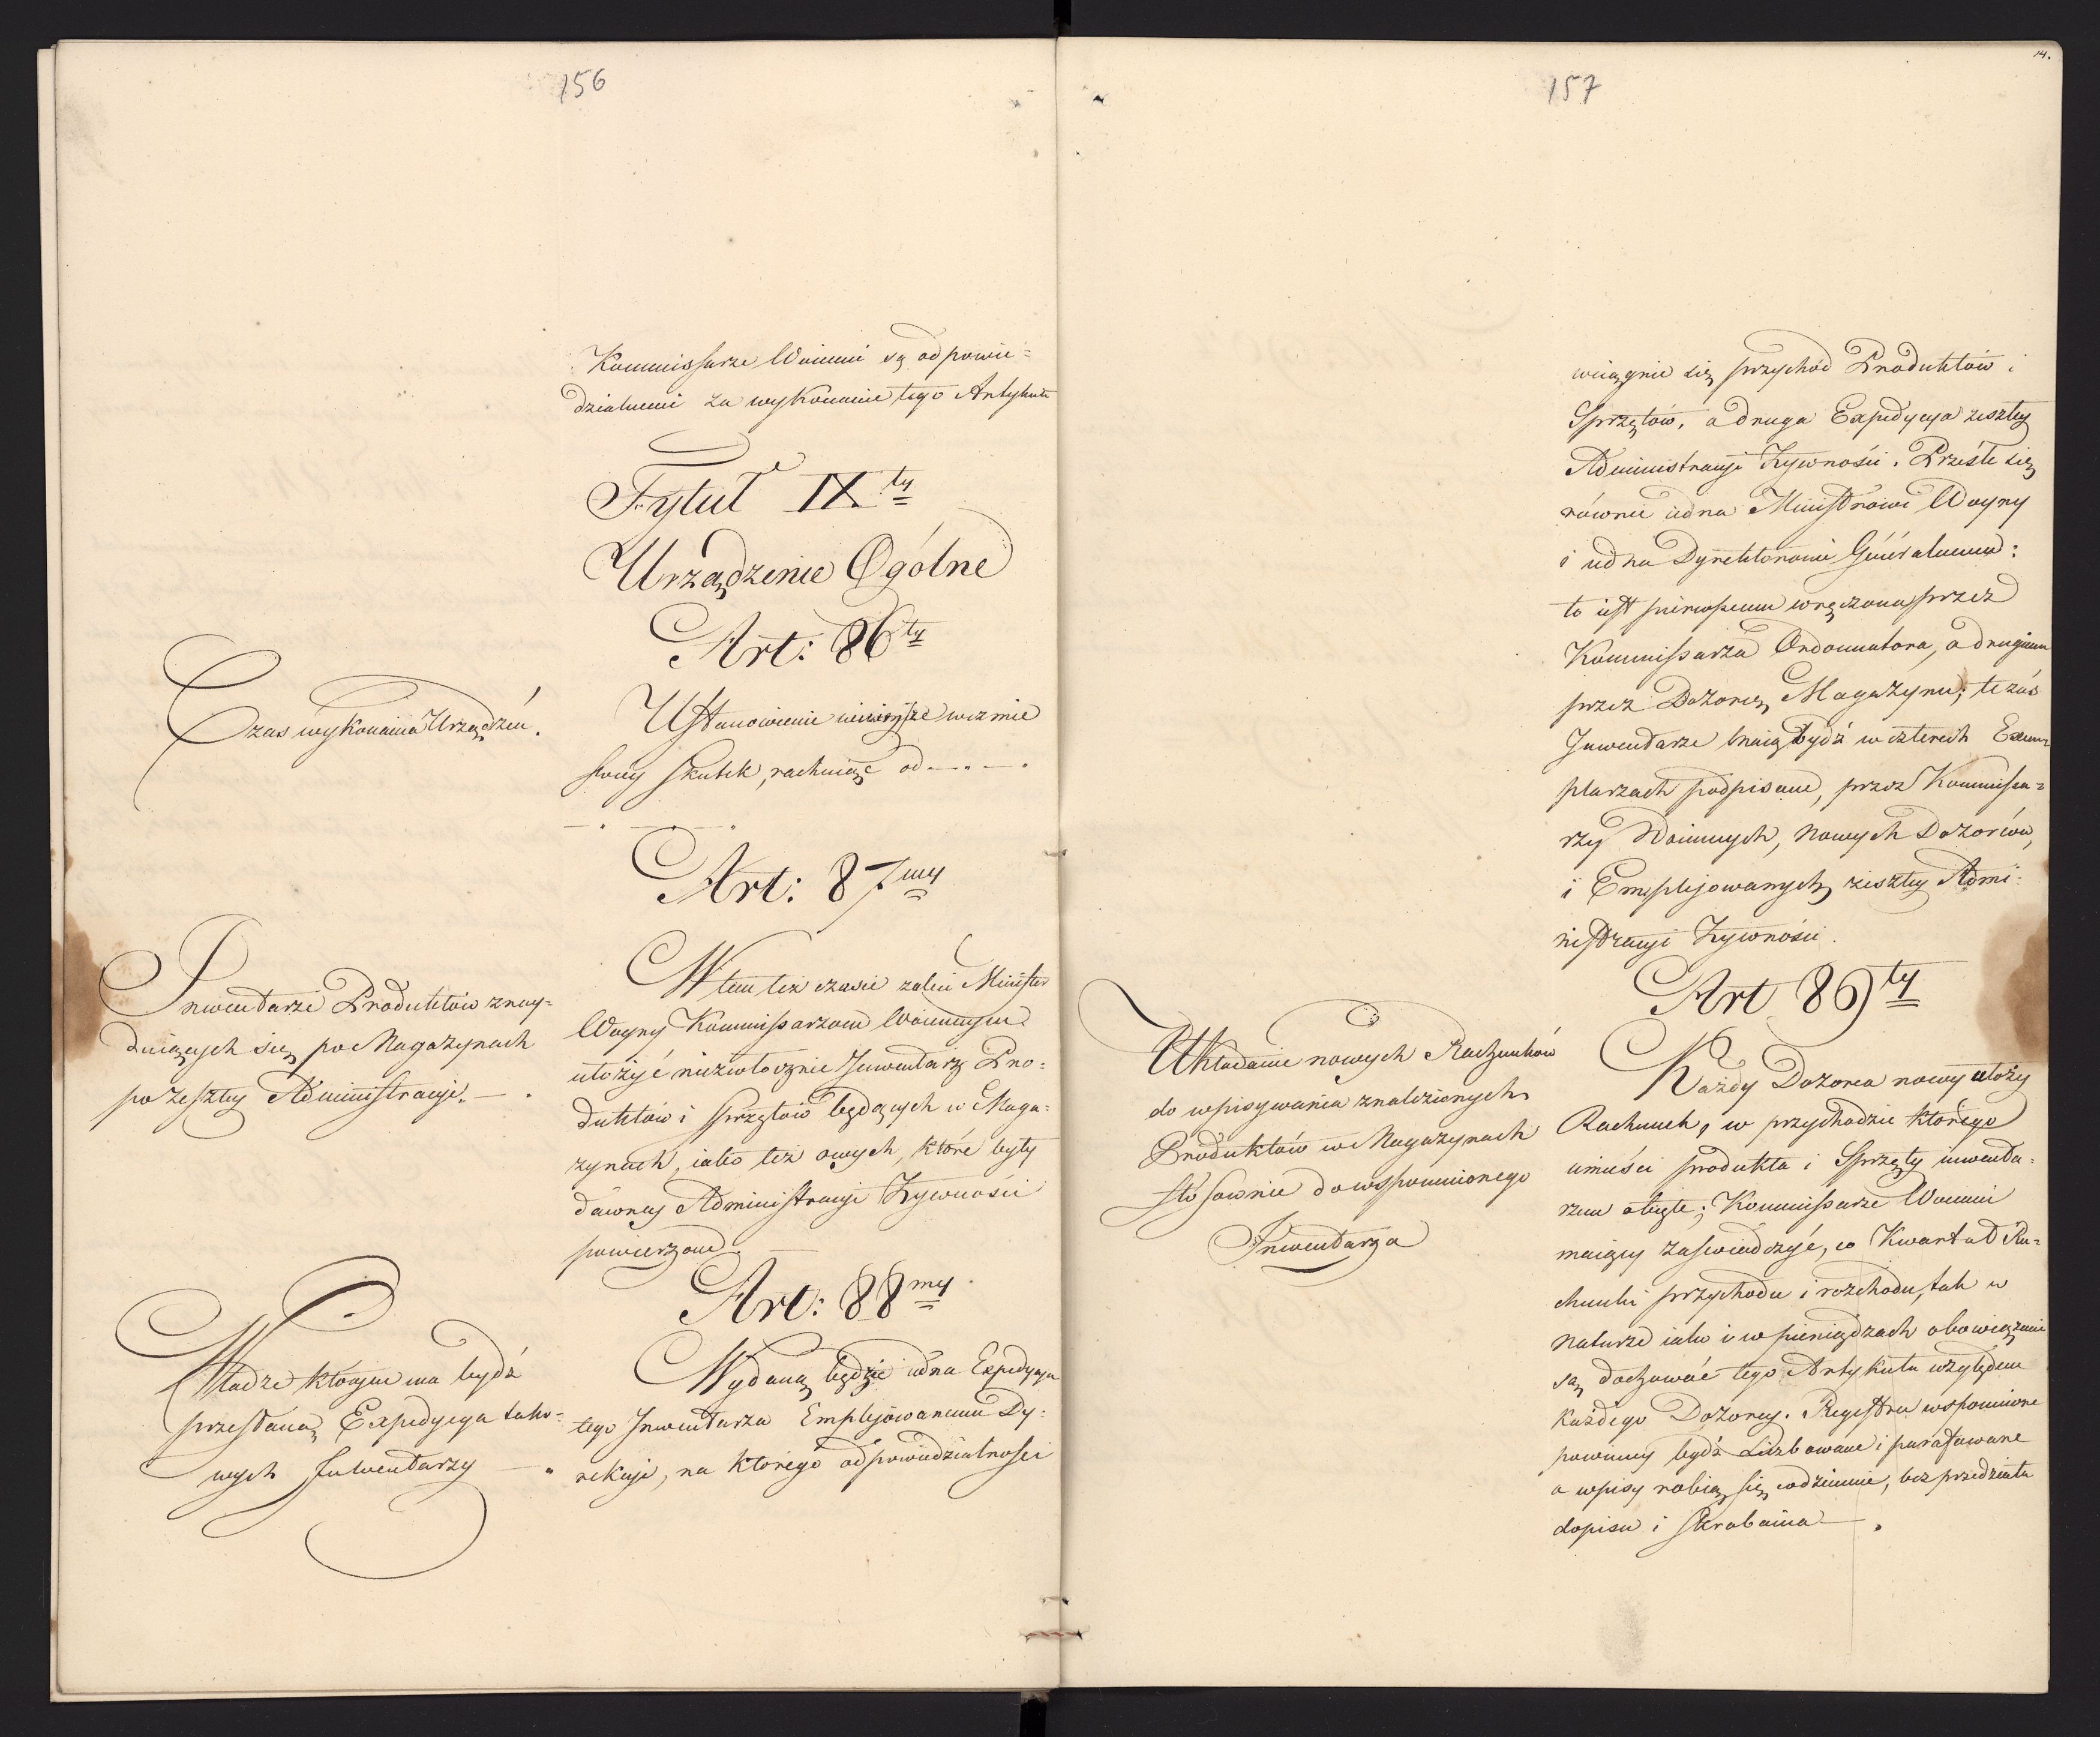 156
Kommissarze Woienni są odpowie=
dzialnemi za wykonanie tego Artykułu
Tytuł IX.ty
Urządzenie Ogólne
Art: 86ty
Czas wykonania Urządzeń.
Ustanowienie ninieysze weźmie
swóy skutek, rachuiąc od
Art: 87my
Inwentarze Produktów znay=
duiących się po Magazynach
po zeszłey Administracyi.
W tem też czasie zaleci Minister
Woyny Kommissarzom Woiennym
ułożyć niezwłocznie Inwentarz Pro=
duktów i sprzętów będących w Maga=
zynach, iako też owych, które były
dawney Administracyi Żywności
powierzone.
Art: 88my
Władze którym ma bydź
przesłana Expedycya tako=
wych Inwentarzy
Wydaną będzie iedna Expedycya
tego Inwentarza Emplejowanemu Dy=
rekcyi, na którego odpowiedzialności
14.
157
wciągnie się przychód Produktów i
Sprzętów, a druga Expedycya zeszłey
Administracyi Żywności. Prześle się
równie iedna Ministrowi Woyny
i iedna Dyrektorowi Generalnemu:
to iest pierwszemu wręczona przez
Kommissarza Ordonnatora, a drugiemu
przez Dozorcę Magazynu; te zaś
Inwentarze maią bydź w czterech Exem=
plarzach podpisane, przez Kommissa=
rzy Woiennych, nowych Dozorców,
i Emplejowanych zeszłey Admi=
nistracyi Żywności.
Art 89ty
Układanie nowych Rachunków
do wpisywania znalezionych
Produktów w Magazynach
stosownie do wspomnionego
Inwentarza
Każdy Dozorca nowy ułoży
Rachunek, w przychodzie którego
umieści produkta i Sprzęty inwenta=
rzem obięte; Kommissarze Woienni
maiący zaświadczyć, co Kwartał Ra=
chunki przychodu i rozchodu, tak w
naturze iako i w pieniądzach obowiązani
są dochować tego Artykułu względem
każdego Dozorcy. Regestra wspomnione
powinny bydź Liczbowane i parafowane
a wpisy robią się codziennie, bez przedziału
dopisu i skrobania